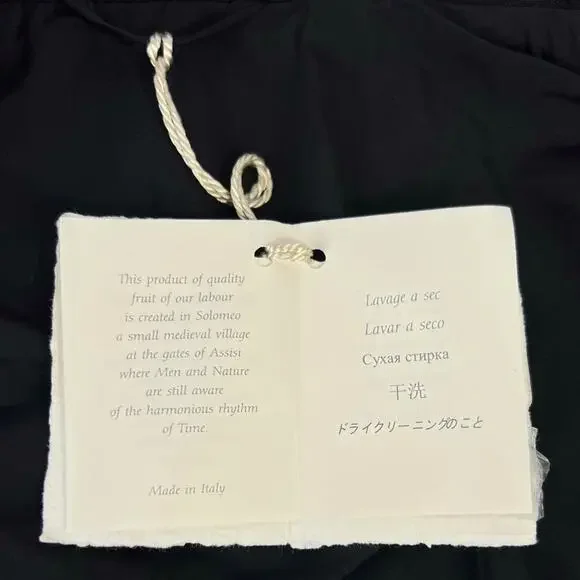 This product of quality
fruit of our labour
is created in Solomeo
a small medieval village
at the gates of Assisi
where Men and Nature
are still aware
of the harmonious rhythm
of Time.
Made in Italy
Lavage a sec
Lavar a seco
Сухая стирка
干洗
ドライクリーニングのこと